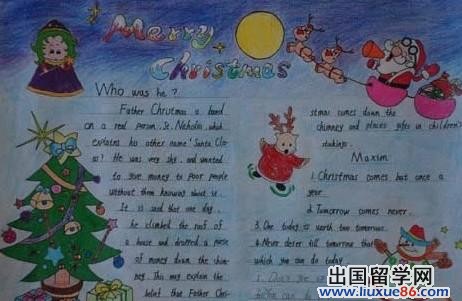 Merry
Christmas
Who was he?
Father Christmas is based
on a real person, St. Nicholas, which
explains his other name 'Santa Cla-
us'. He was very shy and wanted
to give money to poor people
without them knowing about it.
It is said that one day,
he climbed the roof of
a house and dropped a purse
of money down the chim-
ney. This may explain the
belief that Father Chri-
stmas comes down the
chimney and places gifts in children's
stockings.
Maxim
1. Christmas comes but once a
year.
2. Tomorrow comes never.
3. One today is worth two tomorrows.
4. Never deter till tomorrow that
which you can do today.
出国留学网
www.liuxue86.com